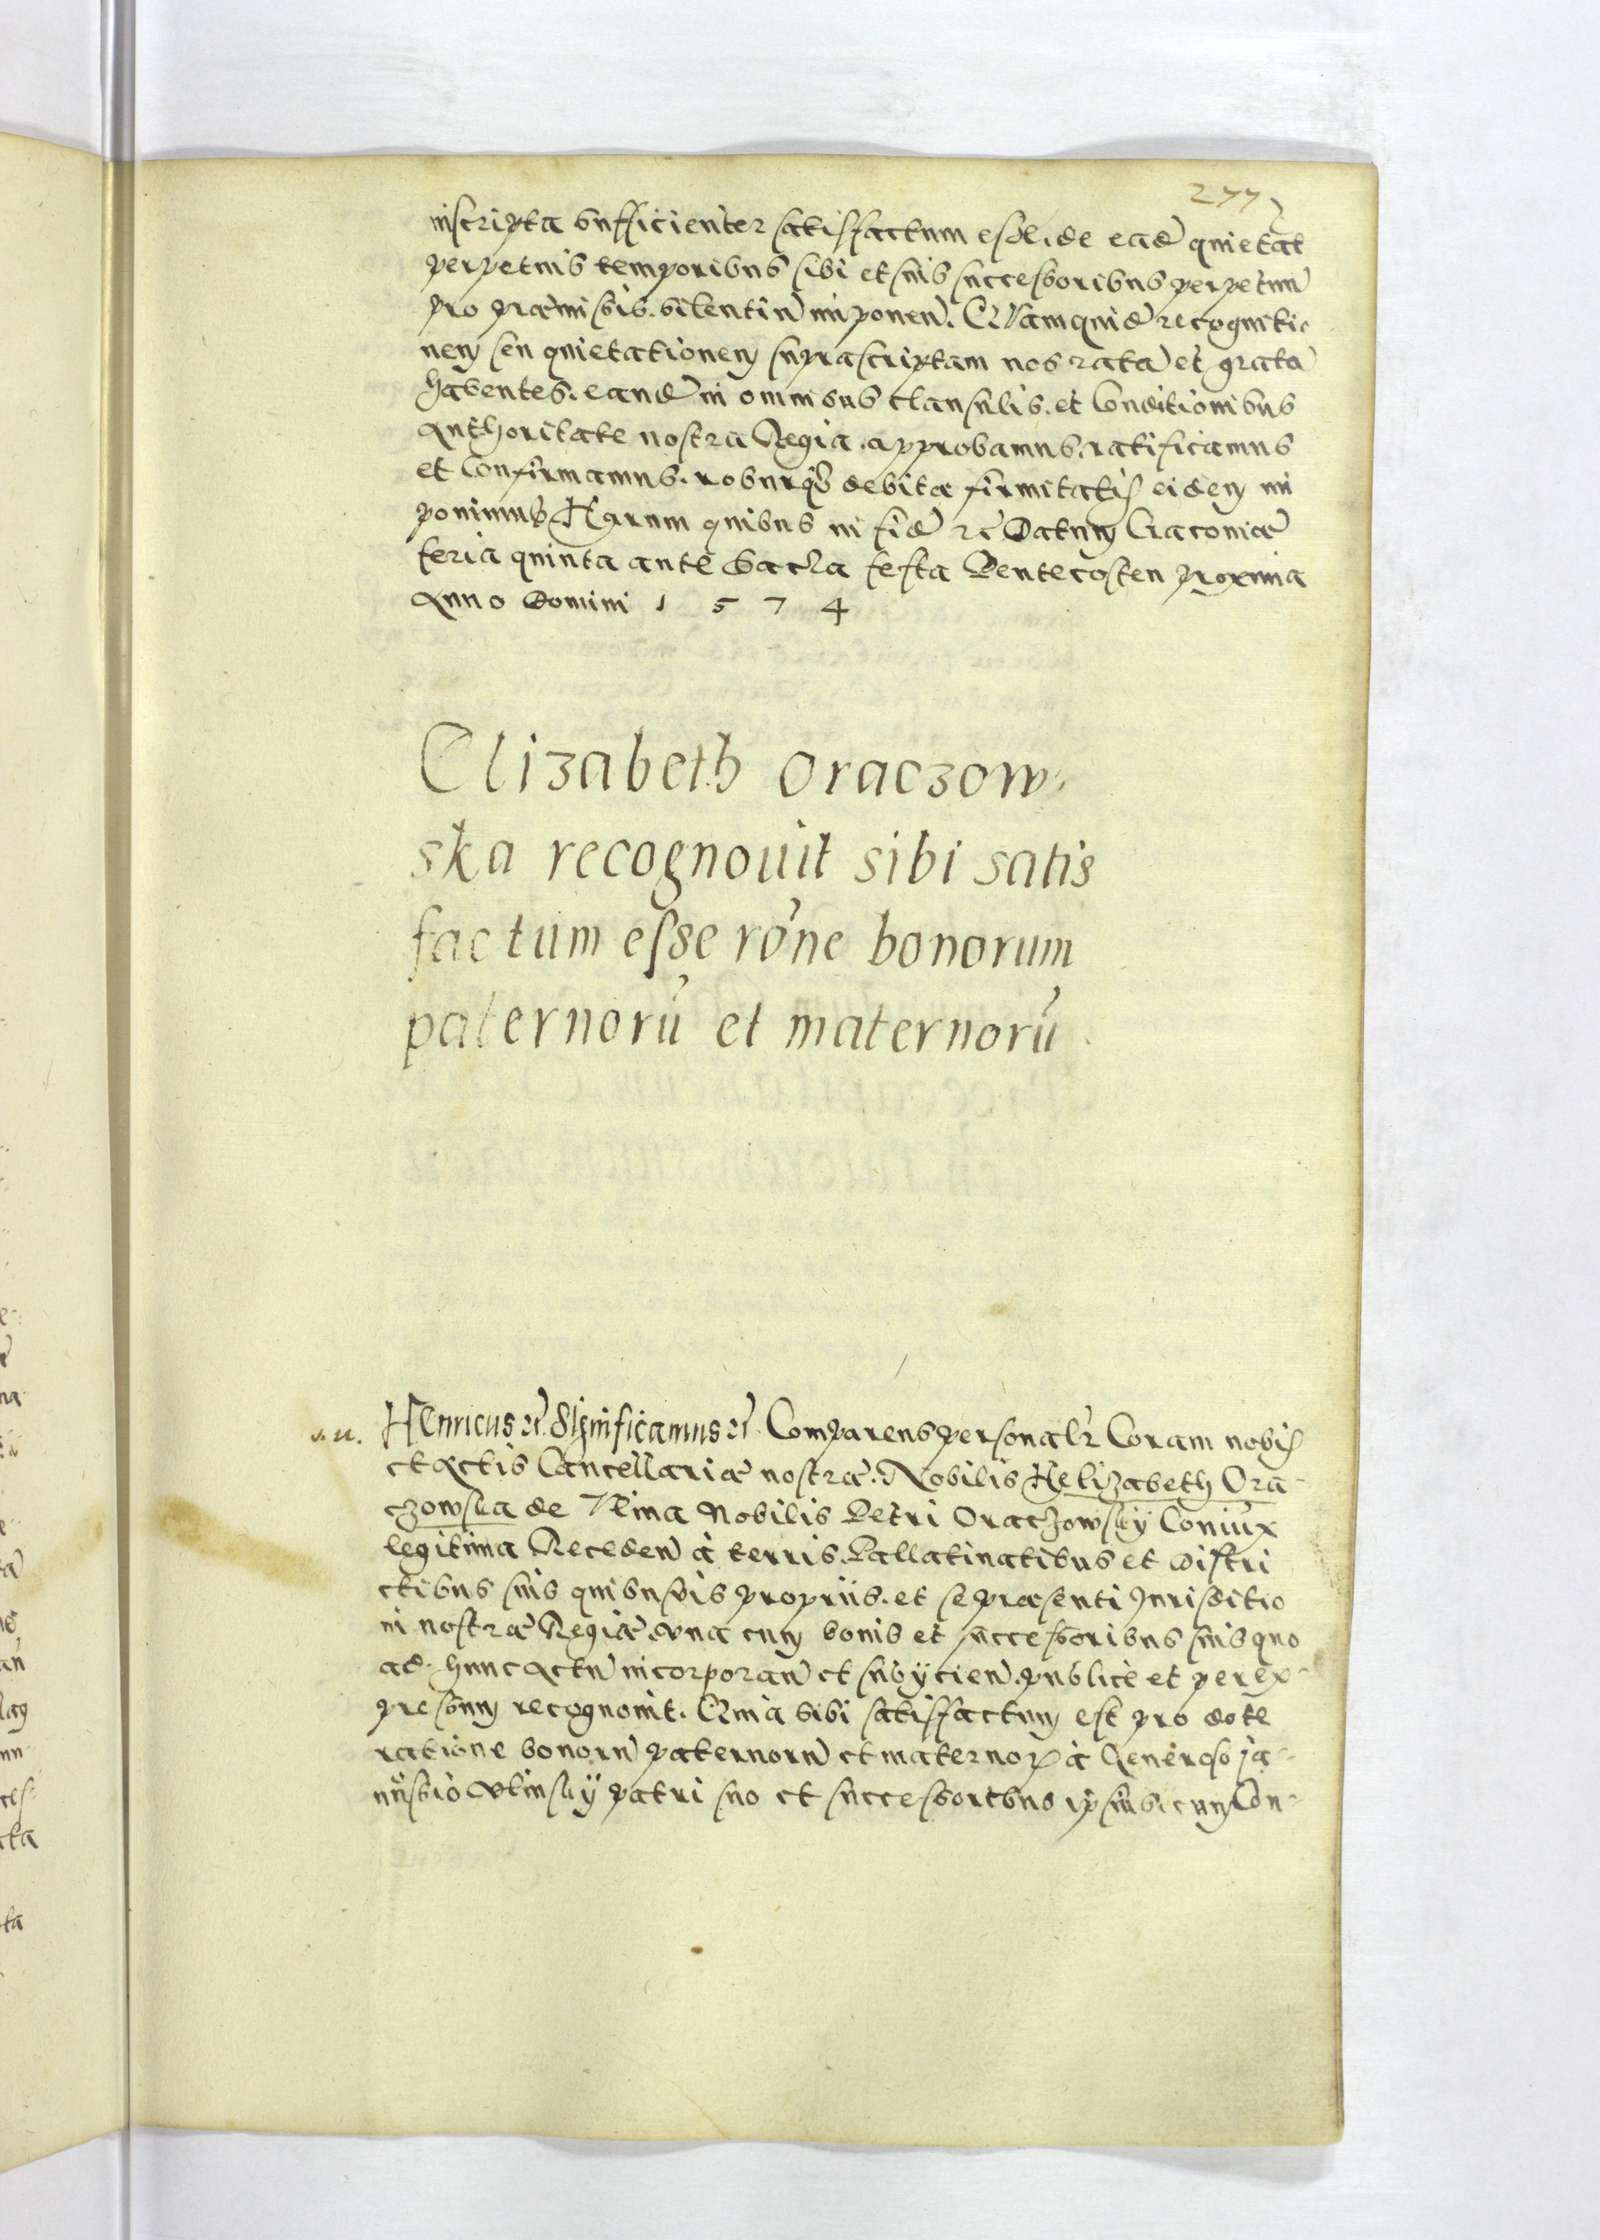 277
inscripta sufficienter satisfactum esse, de eadē quietat
perpetuis temporibus sibi et suis successoribus perpetuū
pro præmissis silentiū imponen̄. Quamquidē recognitio
nem seu quietationem suprascriptam nos ratā et gratā
habentes, eandē in omnibus clausulis, et Conditionibus
Authoritate nostra Regia approbamus, ratificamus
et Confirmamus, roburq̨ debitæ firmitatis eidem im
ponimus Harum quibus in fidē rc̄ Datum Cracoviæ
feria quinta ante Sacra festa Pentecosten proxima
Anno Domini 1 5 7 4
Elizabeth Oraczow-
ska recognouit sibi satis
factum esse rōne bonorum
paternorū et maternorū
Henricus rc̄ Significamus rc̄ Comparens personalr̄ Coram nobis
et Actis Cancellariæ nostræ. Nobilis Helizabeth Ora-
czowska de Nobilis Petri Oraczowsky Coniux
legitima Receden̄ à terris, Pallatinatibus et distri
ctibus suis quibusvis propriis, et se præsenti Jurisditio
ni nostræ Regiæ, vna cum bonis et successoribus suis quo
ad hunc Actū incorporan̄ et subÿcien̄ publicè et per ex-
pressum recognouit. Quia sibi satisfactum est pro dote
ratione bonorū paternorū et maternoꝝ à Generoso Ja-
nussio Vlinsky patri suo et successoribus ipsius, cum Con-